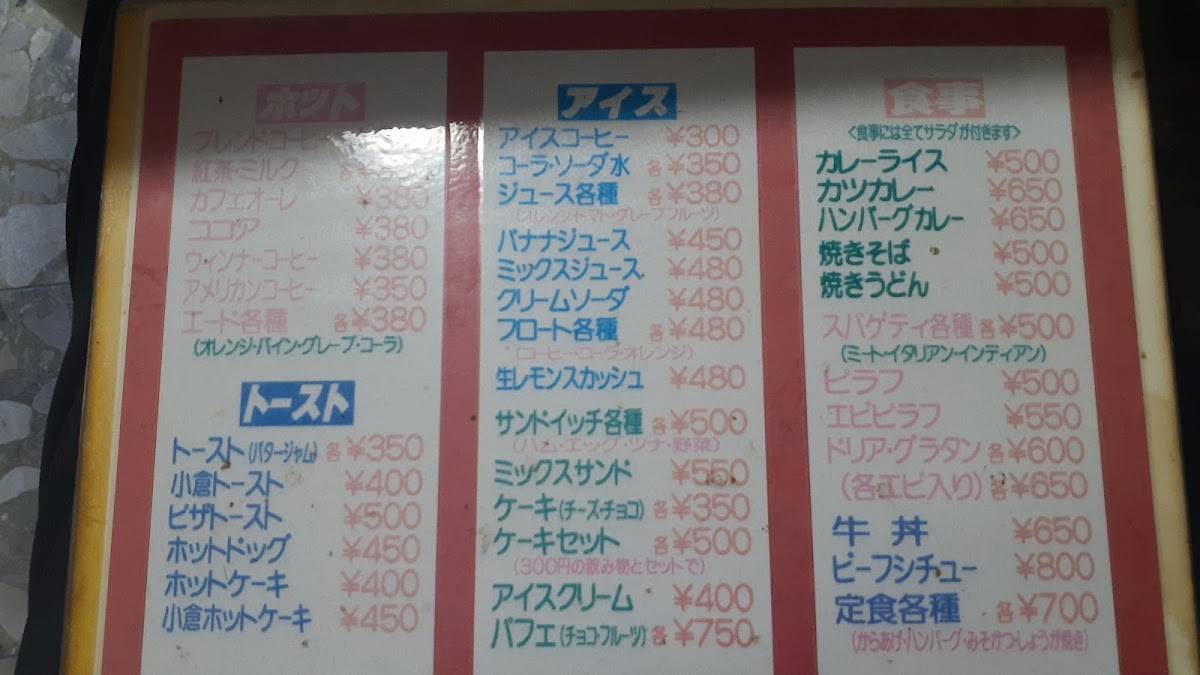 ホット
ブレンドコーヒー
紅茶・ミルク 各
カフェオーレ ¥380
ココア ¥380
ウィンナーコーヒー ¥380
アメリカンコーヒー ¥350
エード各種 各¥380
(オレンジ・パイン・グレープ・コーラ)
トースト
トースト(バタージャム) 各¥350
小倉トースト ¥400
ピザトースト ¥500
ホットドッグ ¥450
ホットケーキ ¥400
小倉ホットケーキ ¥450
アイス
アイスコーヒー ¥300
コーラ・ソーダ水 各¥350
ジュース各種 各¥380
(オレンジ・トマト・グレープフルーツ)
バナナジュース ¥450
ミックスジュース ¥480
クリームソーダ ¥480
フロート各種 各¥480
(コーヒー・コーラ・オレンジ)
生レモンスカッシュ ¥480
サンドイッチ各種 各¥500
(ハム・エッグ・ツナ・野菜)
ミックスサンド ¥550
ケーキ(チーズ・チョコ) 各¥350
ケーキセット 各¥500
(300円の飲み物とセットで)
アイスクリーム ¥400
パフェ(チョコ・フルーツ) 各¥750
食事
<食事には全てサラダが付きます>
カレーライス ¥500
カツカレー ¥650
ハンバーグカレー ¥650
焼きそば ¥500
焼きうどん ¥500
スパゲティ各種 各¥500
(ミート・イタリアン・インディアン)
ピラフ ¥500
エビピラフ ¥550
ドリア・グラタン 各¥600
(各エビ入り) 各¥650
牛丼 ¥650
ビーフシチュー ¥800
定食各種 各¥700
(からあげ・ハンバーグ・みそかつ・しょうが焼き)